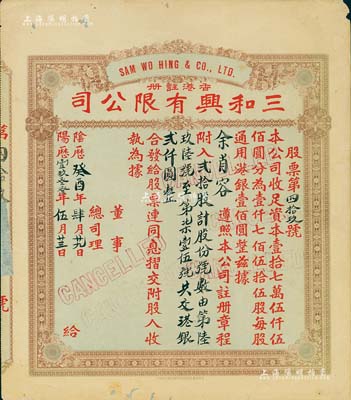 SAM WO HING & CO., LTD.
香港註册
三和興有限公司
股票第四拾玖號
本公司收足資本壹拾七萬伍仟伍
佰圓分為壹仟七佰伍拾伍股每股
通用港銀壹佰圓整茲據
余肖容 遵照本公司註册章程
附入弍拾股計股份號數由第陸
玖陸號至第柒壹伍號共交港銀
弍仟圓整
合發給股票連同息摺交附股人收
執為據
董事
總司理
陰歷癸酉年肆月廿日
陽歷 年伍月 日
給
CANCELLED